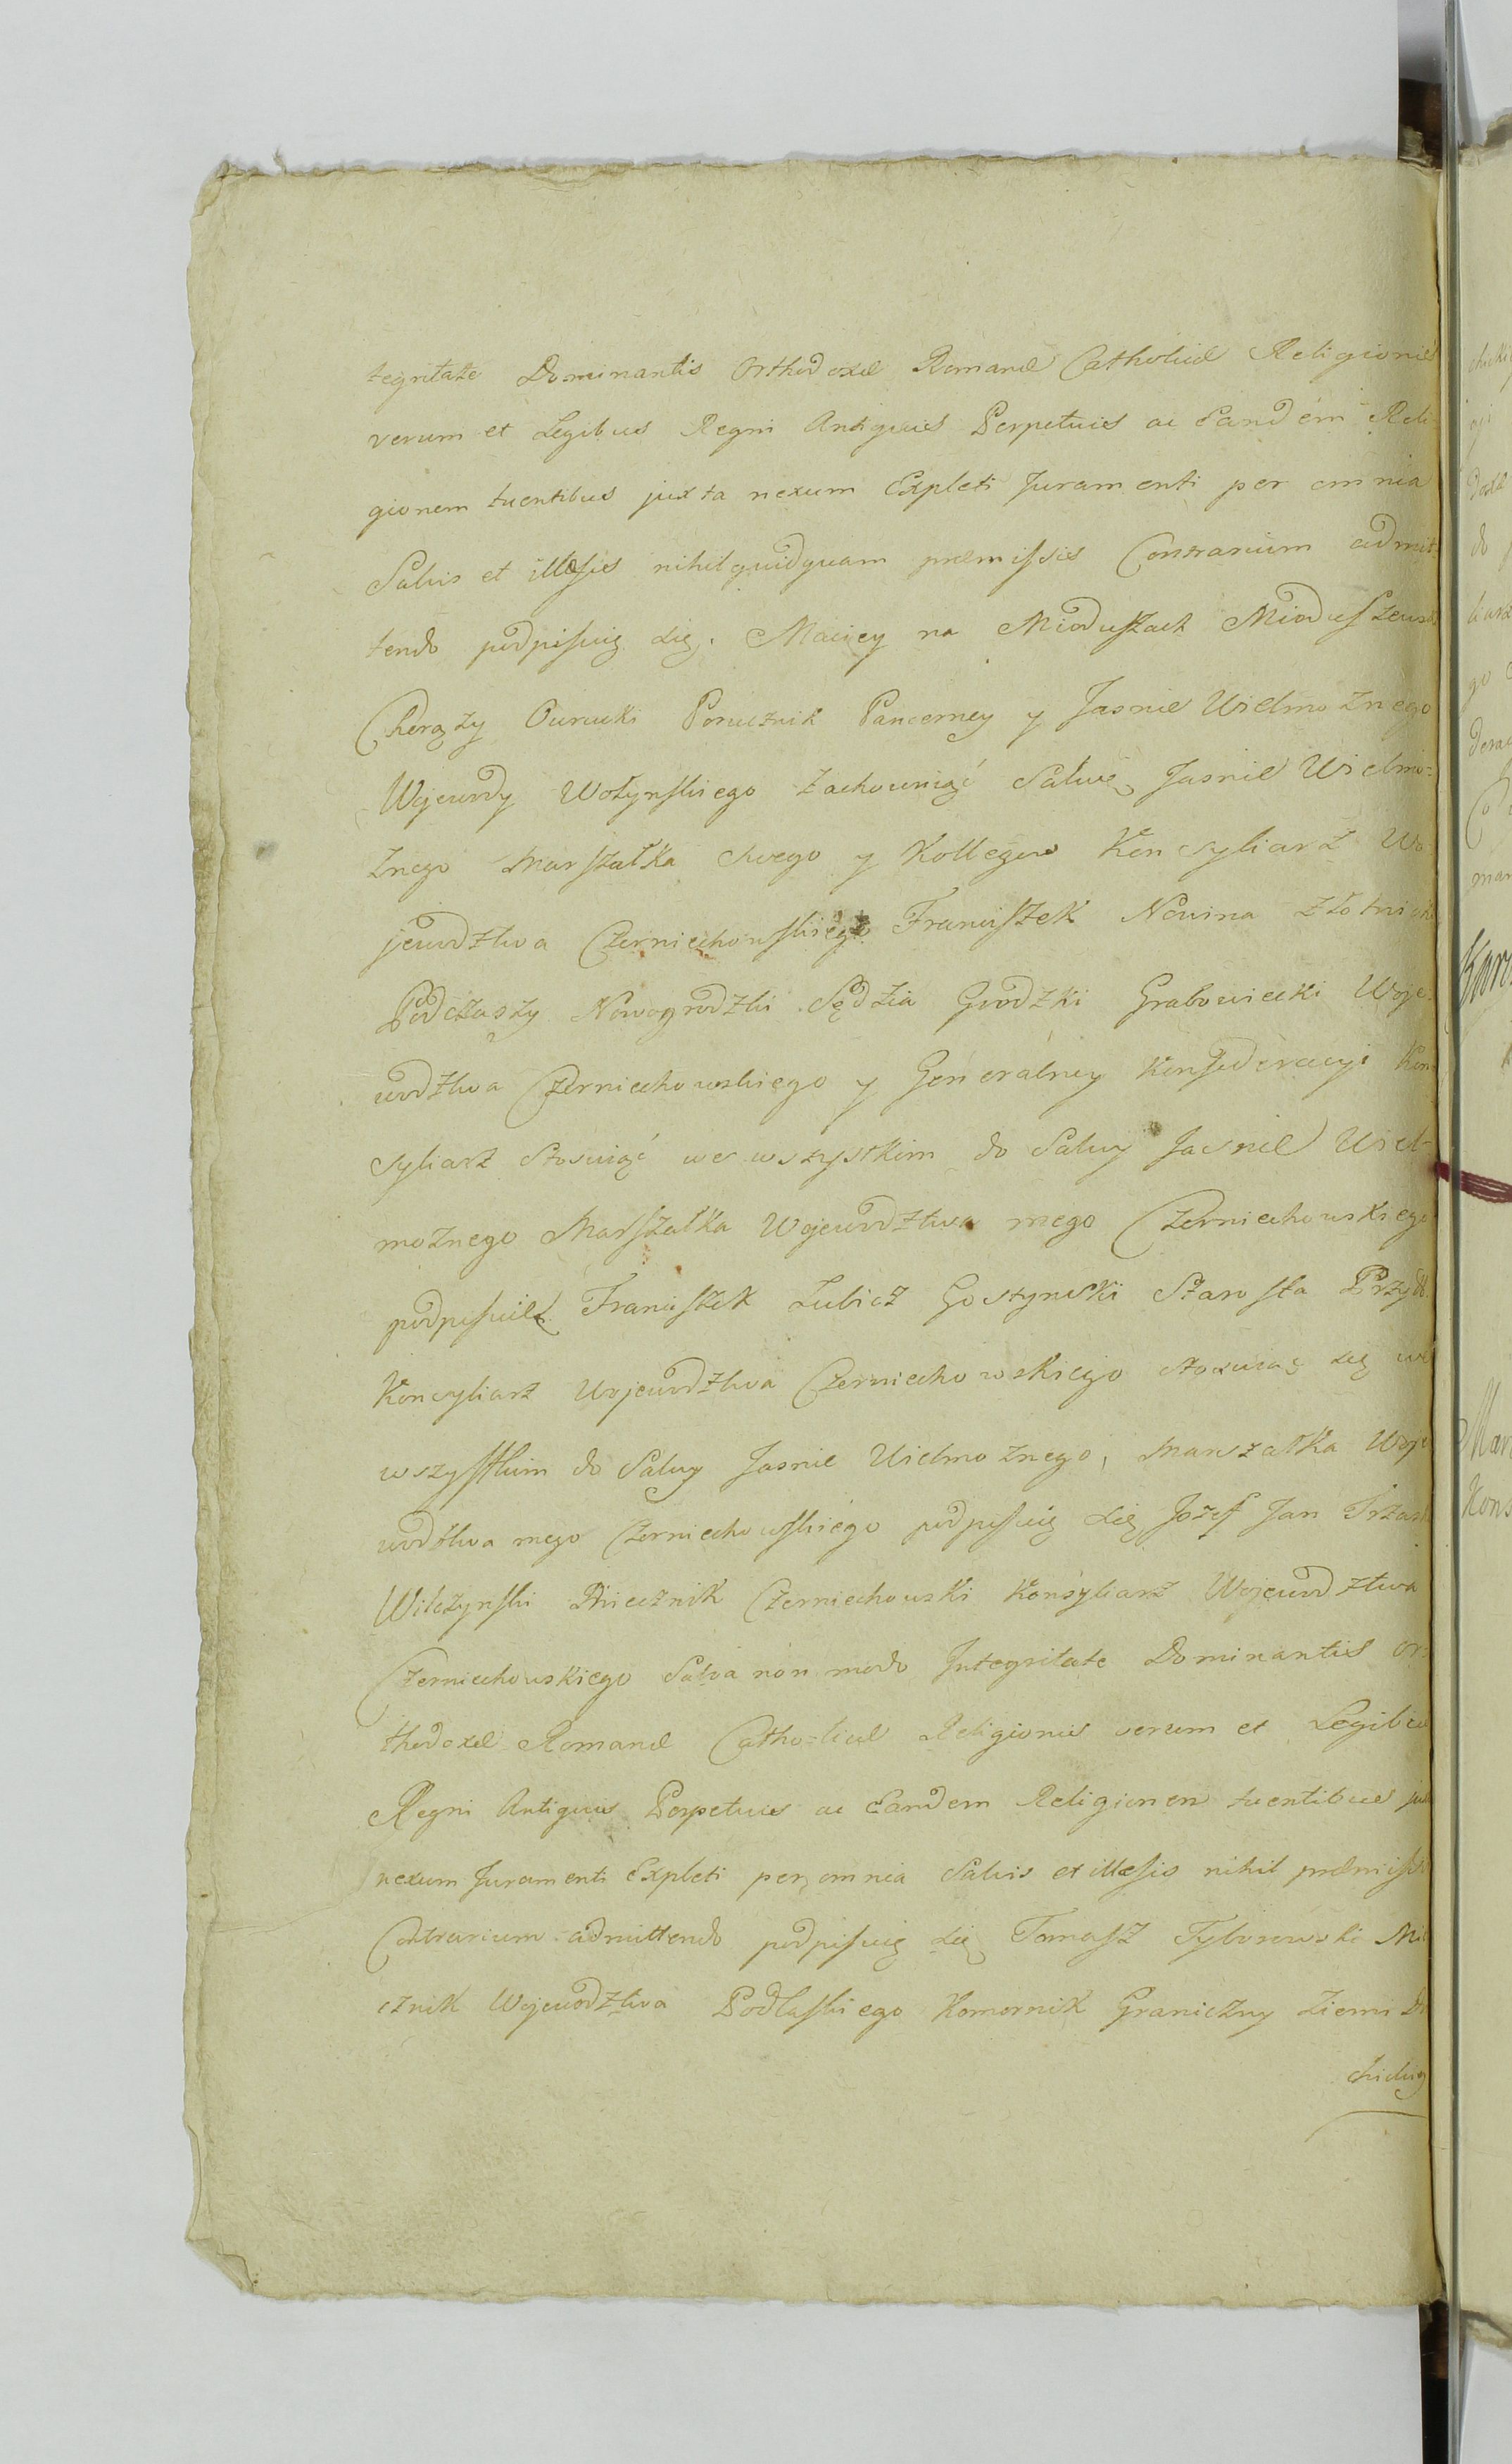 tegritate Dominantis Orthodoxæ Romanæ Catholicæ Religionis
verum et Legibus Regni Antiquis Perpetuis ac Eandem Reli
gionem tuentibus juxta nexum Expleti Juramenti per omnia
Salvis et illæsis nihil quidquam præmissis Contrarium admit
tendo podpisuię się. Maciey na Mioduszach Mioduszewsk
Chorąży Owrucki Porucznik Pancerney y Jasnie Wielmożnego
Wojewody Wołynskiego zachowuiąć Salwę Jasnie Wielmo=
żnego Marszałka swego y Kollegow Konsyliarz Wo
jewodztwa Czerniechowskiego Franciszek Nowina Złotnick
Podczaszy Nowogrodzki Sędzia Grodzki Grabowiecki Woje
wodztwa Czerniechowskiego y Generalney Konfederacyi Kon
syliarz Stosuiąć we wszystkim do Salwy Jasnie Wiel=
możnego Marszałka Wojewodztwa mego Czerniechowskiego
podpisuię Franciszek Lubicz Gostynski Starosta
Konsyliarz Wojewodztwa Czerniechowskiego stosuiąc się we
wszystkim do Salwy Jasnie Wielmożnego, Marszałka Woje
wodztwa mego Czerniechowskiego podpisuię się Jozef Jan Trzask
Wilczynski Miecznik Czerniechowski Konsyliarz Wojewodztwa
Czerniechowskiego Salva non modo Integritate Dominantis Or=
thodoxæ Romanæ Catho=licæ Religionis verum et Legibus
Regni Antiquis Perpetuis ac Eandem Religionem tuentibus jux
nexum Juramenti Expleti per omnia Salvis et illæsis nihil præmissis
Contrarium admittendo podpisuię się Tomasz Tyborowski Mie
cznik Wojewodztwa Podlaskiego Komornik Graniczny Ziemi Dr